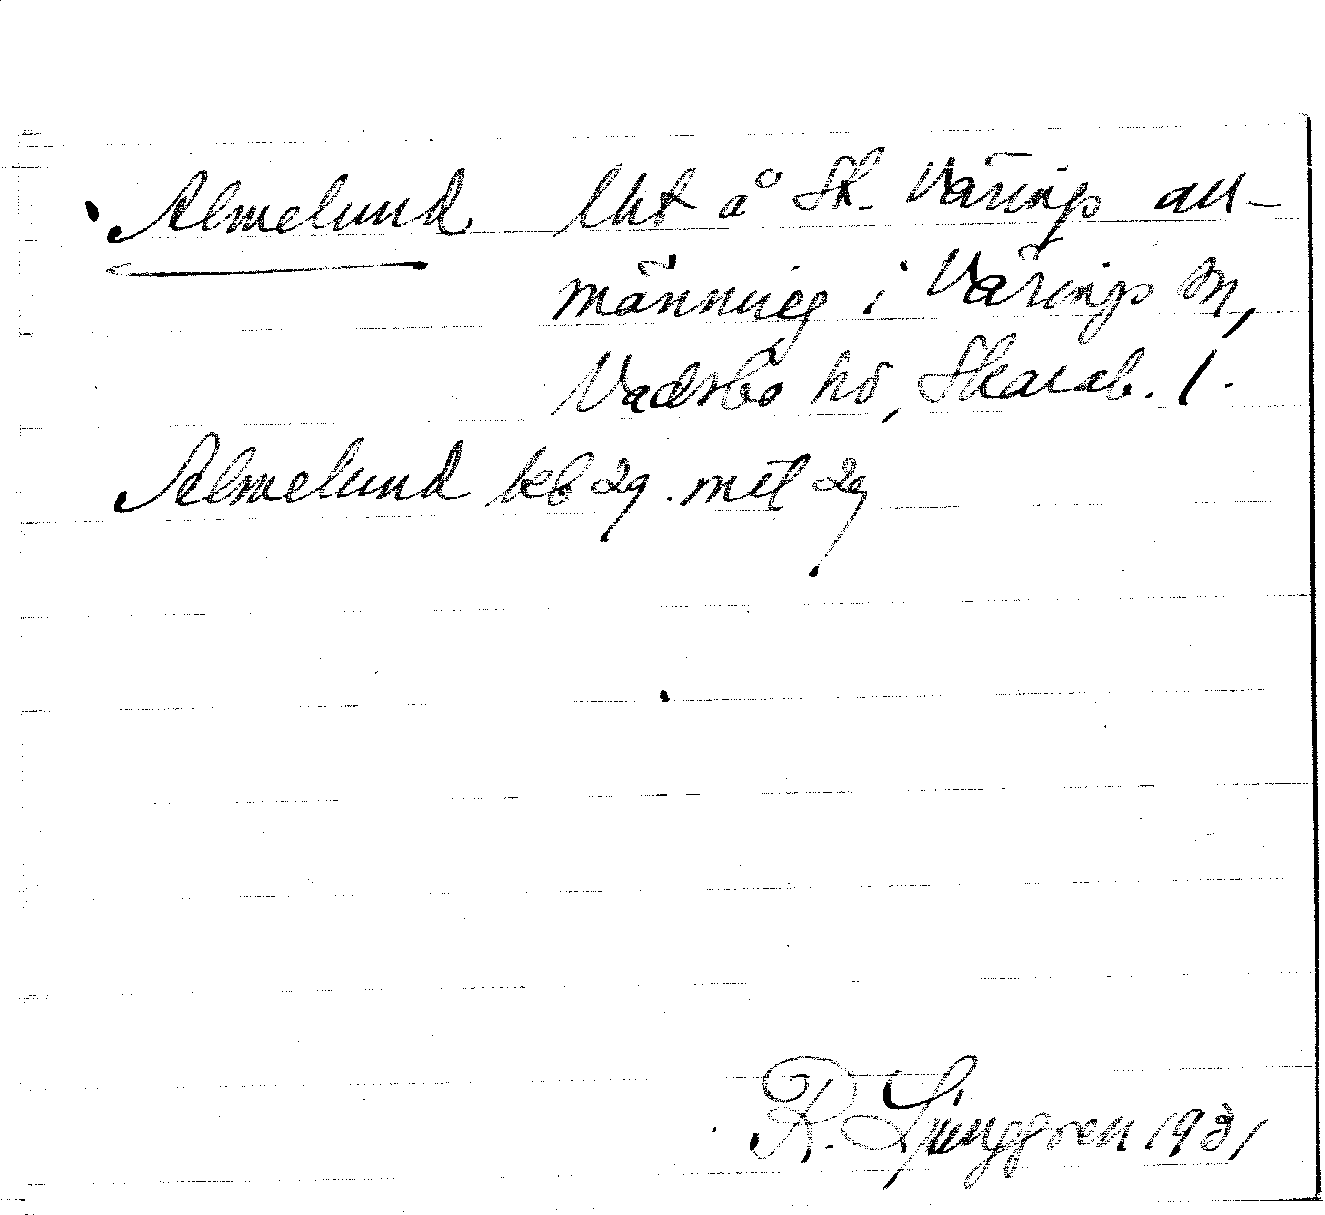 Almelund lht å Sk. Värings all-
männing i Värings sn,
Vadsbo hd, Skarab. l.
Almelund keb 29. mtl 29
R. Ljunggren 1931